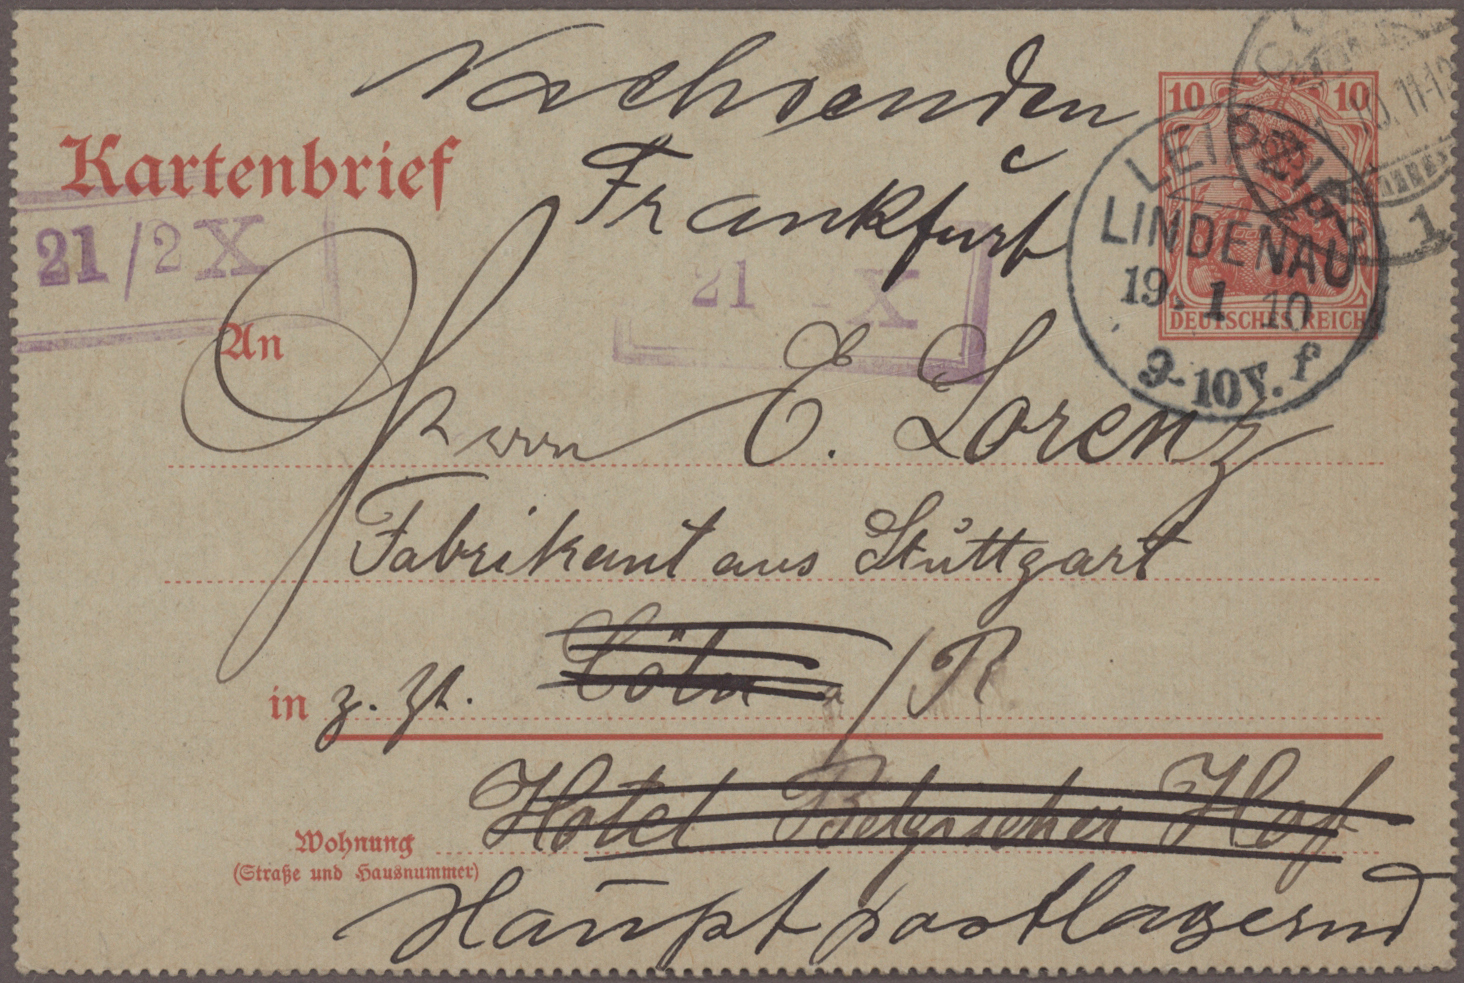 Nachsenden
Frankfurt
Kartenbrief
10 10
DEUTSCHES REICH
LEIPZIG
LINDENAU
19. 1 10
9-10V. f
11-12
1
21/2 X
21 X
An
Herrn E. Lorenz
Fabrikant aus Stuttgart
in z. Zt. Cöln a/R
Hotel Belgischer Hof
Wohnung
(Straße und Hausnummer)
Hauptpostlagernd